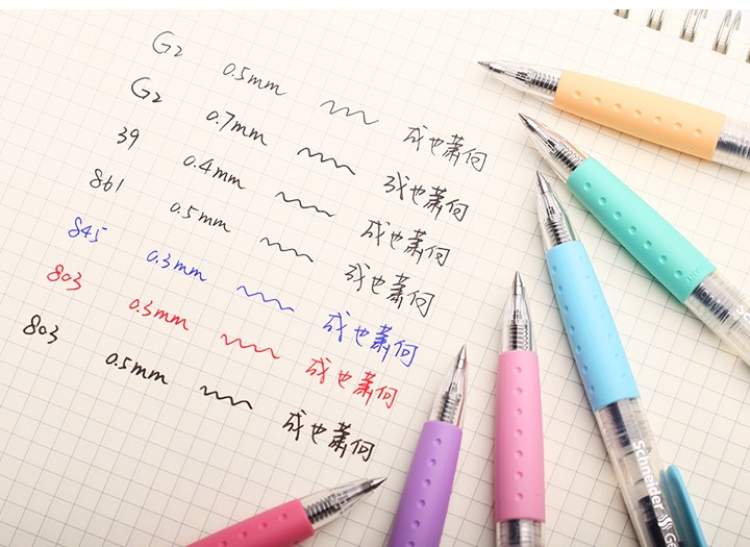 G2 0.5mm 成也萧何
G2 0.7mm 成也萧何
39 0.4mm 成也萧何
861 0.5mm 成也萧何
845 0.3mm 成也萧何
803 0.3mm 成也萧何
803 0.5mm 成也萧何
Schneider